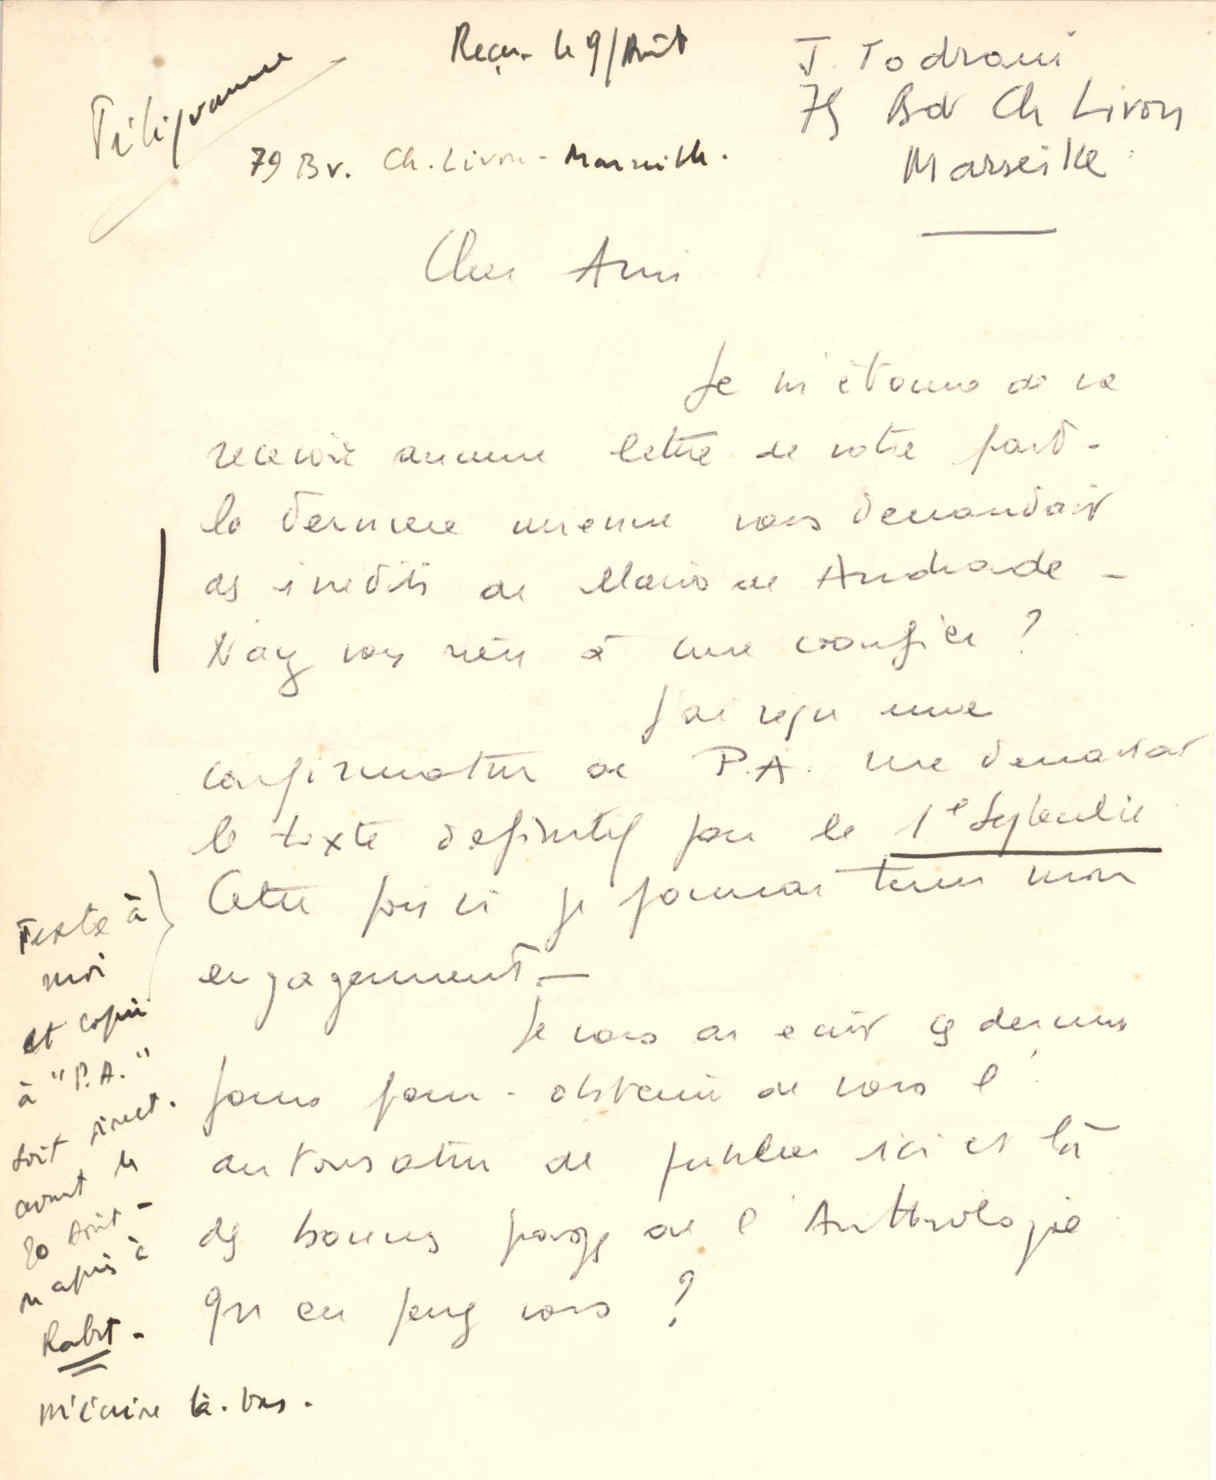 Télégramme
Reçu le 9/Août
79 Bv. Ch. Livon - Marseille.
J. Todrani
79 Bd Ch Livon
Marseille
Cher Ami
Je m'étonne de ne
recevoir aucune lettre de votre part -
la dernière mienne vous demandait
des inédits de Mario de Andrade -
N'avez vous rien à me confier ?
J'ai reçu une
confirmation de P.A. me demandant
le texte définitif pour le 1e Septembre
Cette fois ci je pourrai tenir mon
engagement. -
Je vous ai écrit ces derniers
jours pour obtenir de vous l'
autorisation de publier ici et là
des bonnes pages de l'Anthologie
Qu'en pensez vous ?
Texte à
moi
et copie
à "P.A."
soit direct.
avant le
20 Août -
ou après à
Rabat -
M'écrire là-bas.